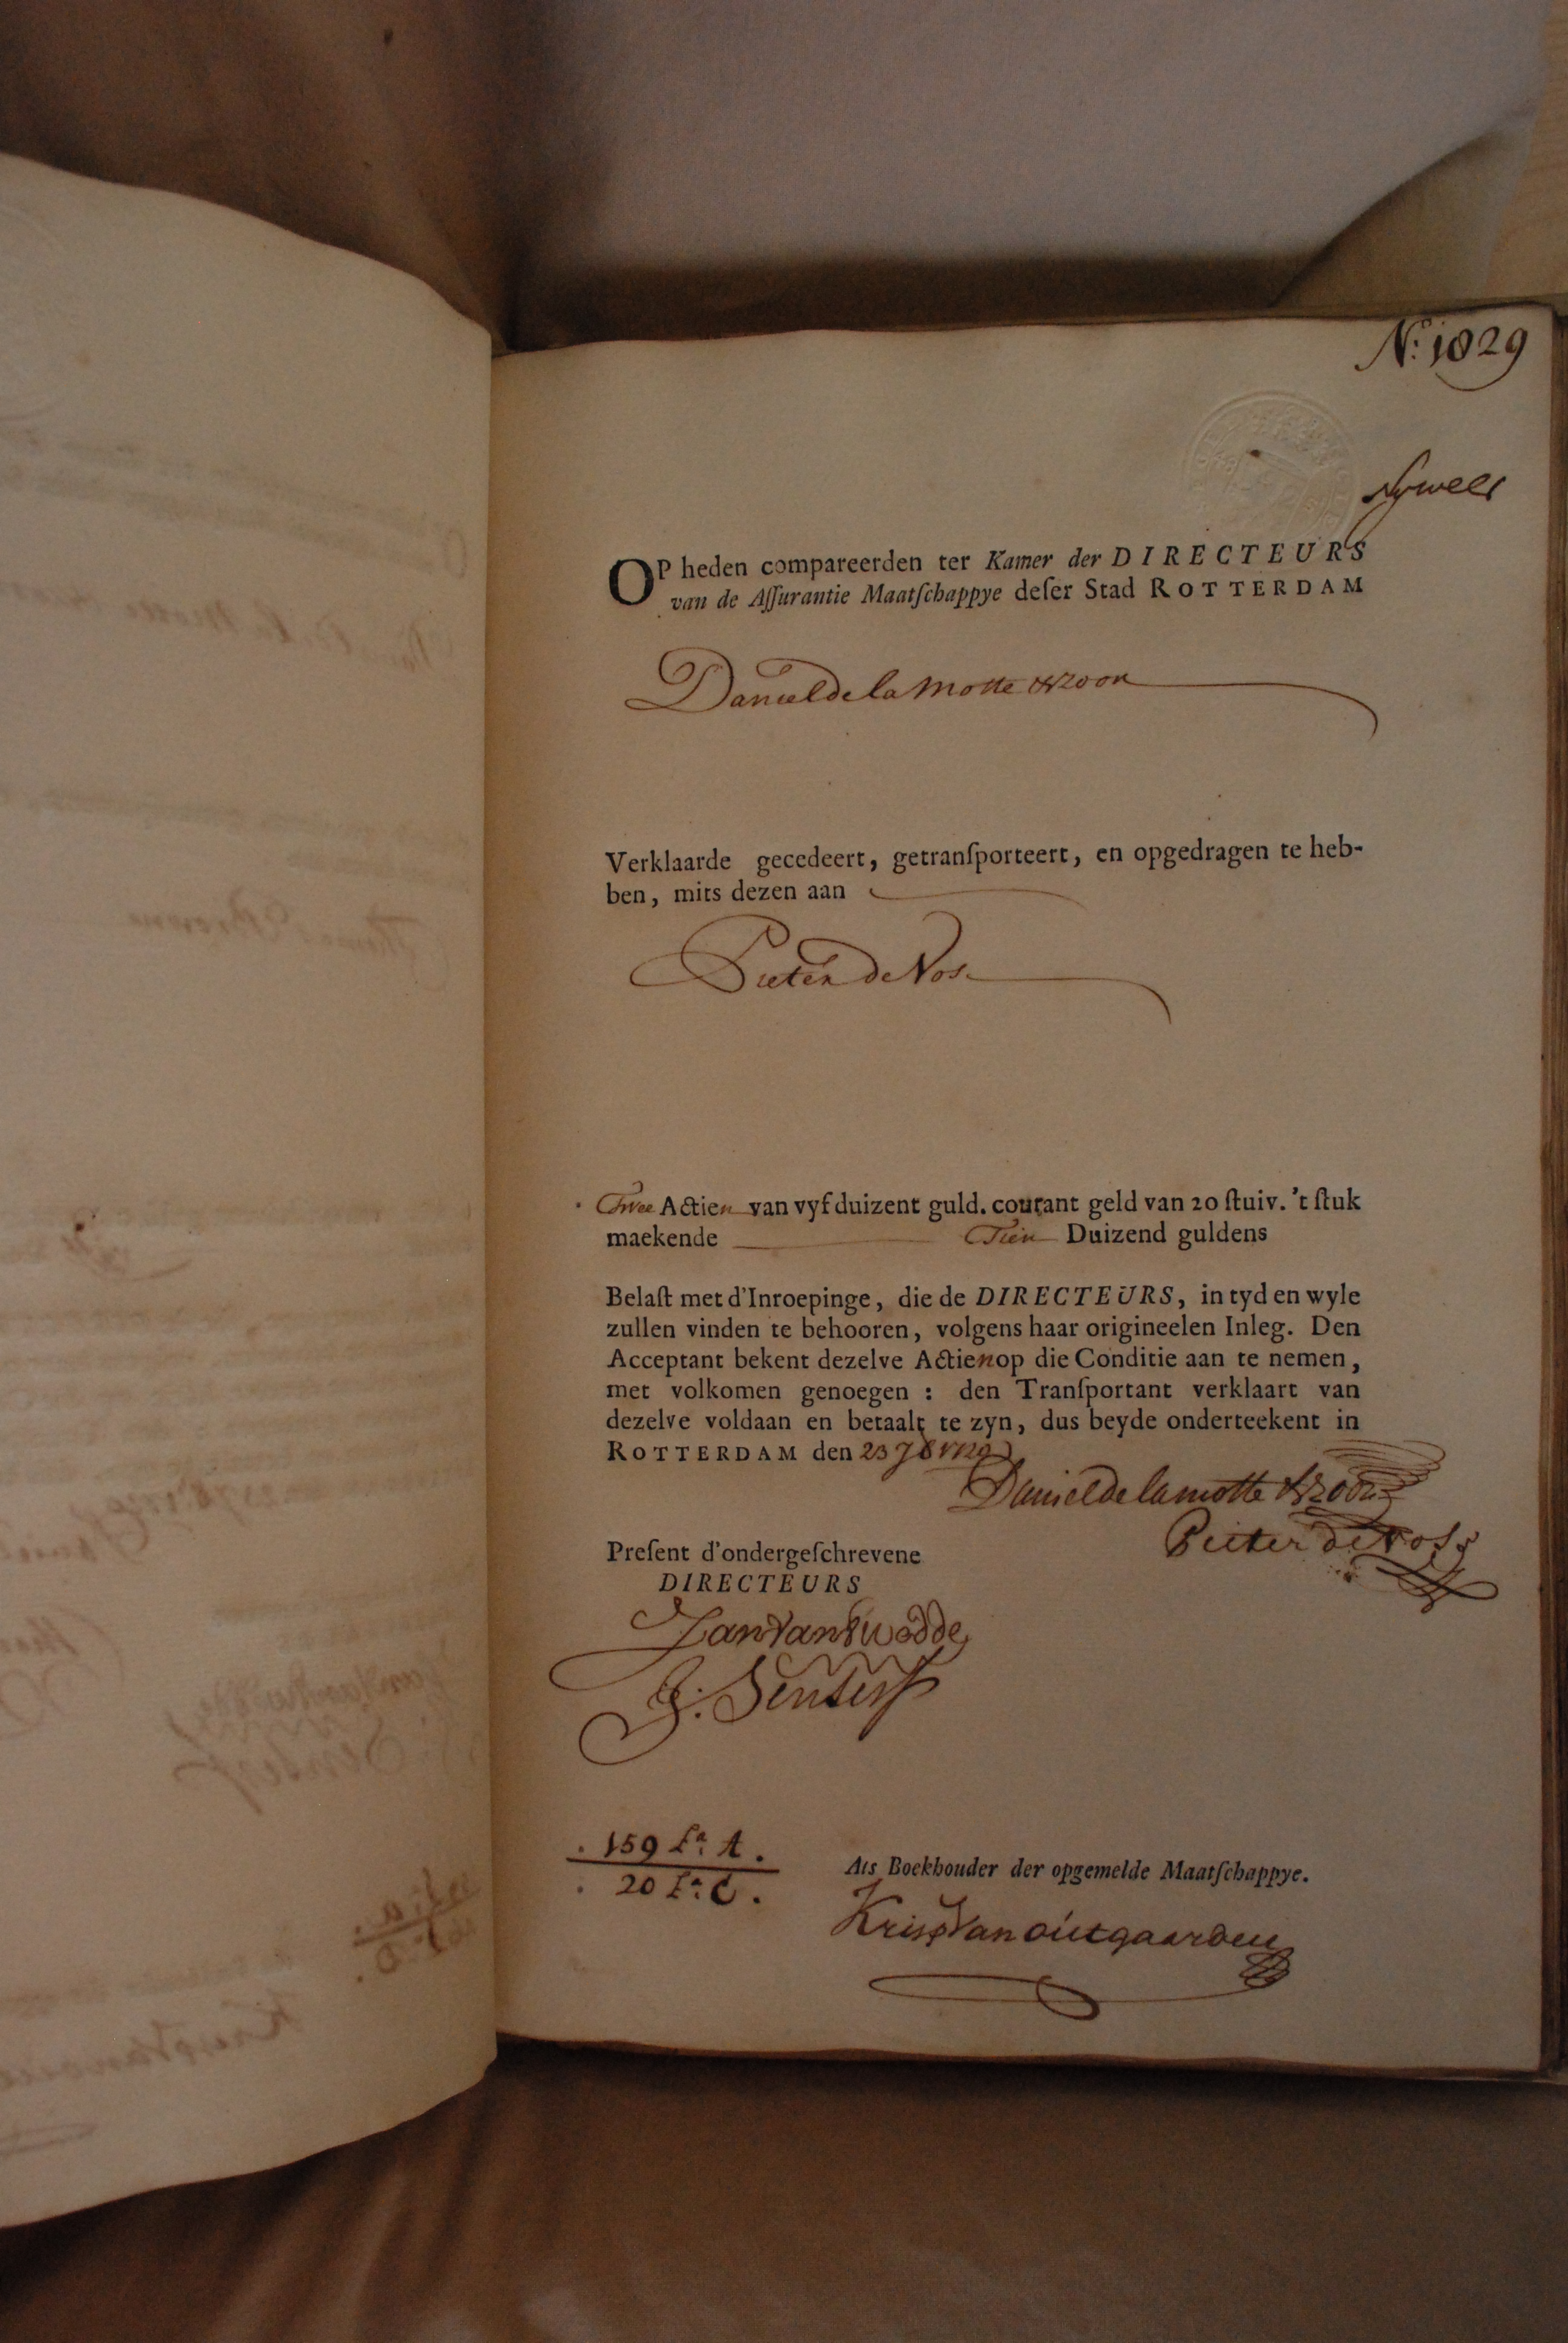 N:o 1029
OP heden compareerden ter Kamer der DIRECTEURS
van de Aſſurantie Maatſchappye deſer Stad ROTTERDAM
Daniel de la Motte & zoon
Verklaarde gecedeert, getranſporteert, en opgedragen te heb-
ben, mits dezen aan
Pieter de Vos
Twee Actien van vyf duizent guld. courant geld van 20 ſtuiv. 't ſtuk
maekende Tien Duizend guldens
Belaſt met d'Inroepinge, die de DIRECTEURS, in tyd en wyle
zullen vinden te behooren, volgens haar origineelen Inleg. Den
Acceptant bekent dezelve Actien op die Conditie aan te nemen,
met volkomen genoegen : den Tranſportant verklaart van
dezelve voldaan en betaalt te zyn, dus beyde onderteekent in
ROTTERDAM den 23 7b 1720
Daniel de la motte & zoon
Pieter de Vos
Preſent d'ondergeſchrevene
DIRECTEURS
G: Senserf
159 La: A.
20 La: C.
Als Boekhouder der opgemelde Maatſchappye.
Krisp Van outgaarden